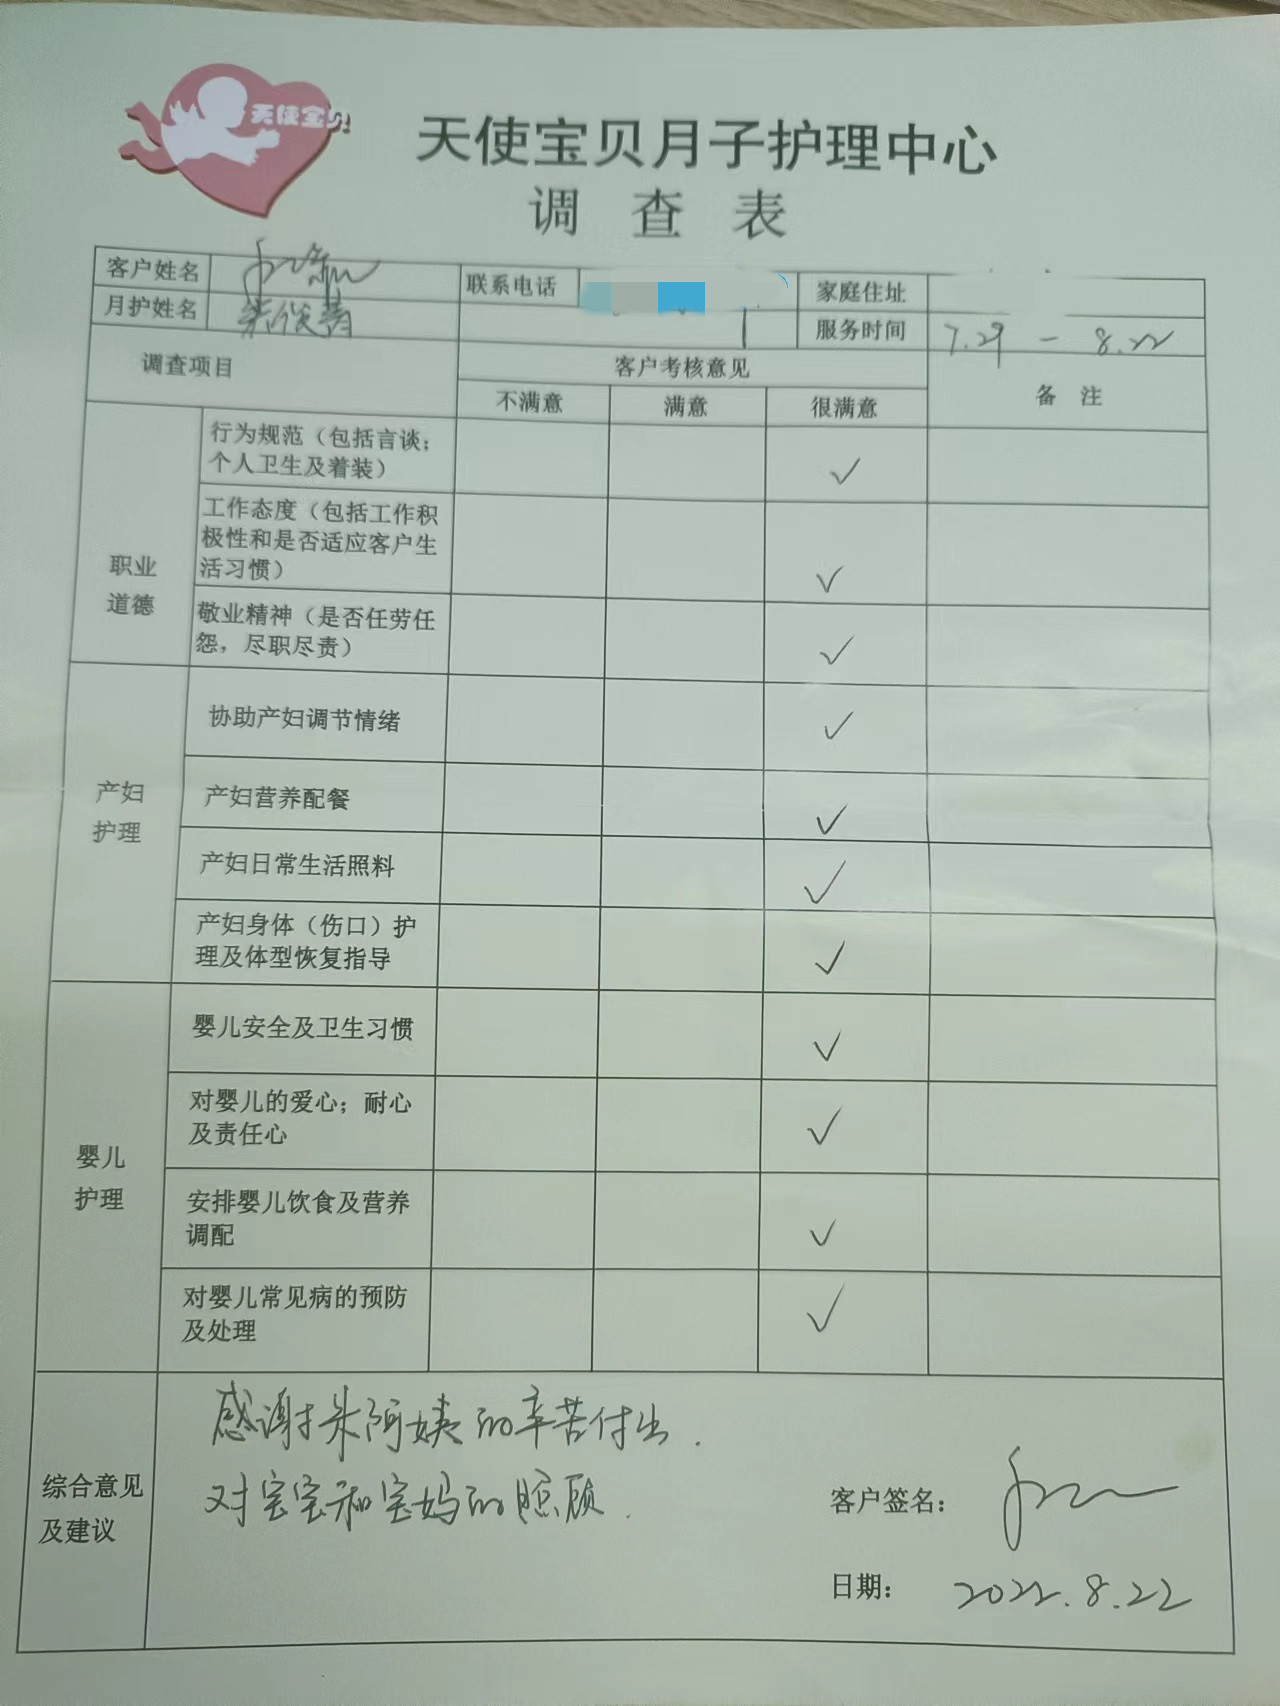 天使宝贝
天使宝贝月子护理中心
调 查 表
客户姓名
联系电话
家庭住址
月护姓名
朱俊青
服务时间
7.29 - 8.22
调查项目
客户考核意见
备 注
不满意
满意
很满意
职业
道德
行为规范（包括言谈；
个人卫生及着装）
√
工作态度（包括工作积
极性和是否适应客户生
活习惯）
√
敬业精神（是否任劳任
怨，尽职尽责）
√
产妇
护理
协助产妇调节情绪
√
产妇营养配餐
√
产妇日常生活照料
√
产妇身体（伤口）护
理及体型恢复指导
√
婴儿
护理
婴儿安全及卫生习惯
√
对婴儿的爱心；耐心
及责任心
√
安排婴儿饮食及营养
调配
√
对婴儿常见病的预防
及处理
√
综合意见
及建议
感谢朱阿姨的辛苦付出.
对宝宝和宝妈的照顾.
客户签名：
日期：
2022.8.22